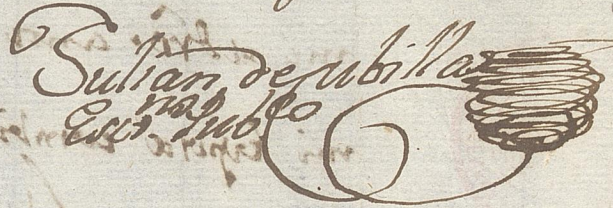 Julian de cubillas
Escrno Pubco